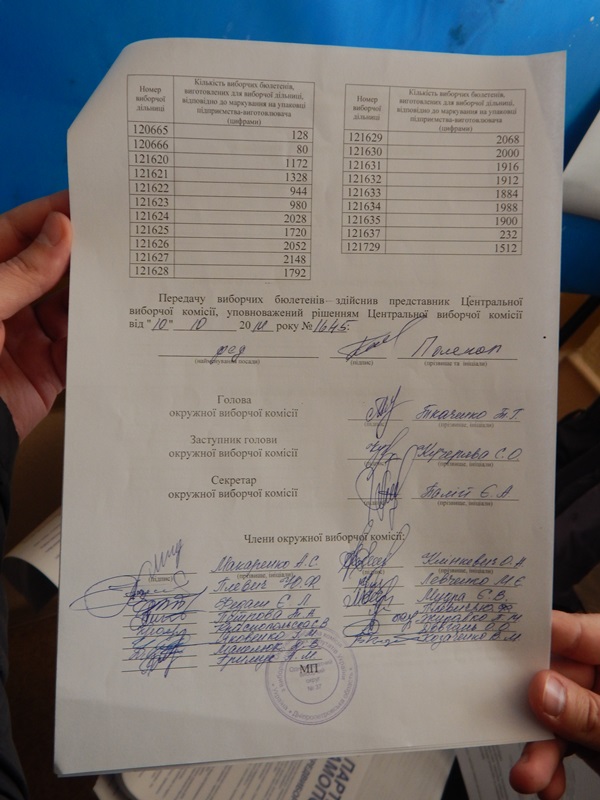 Номер виборчої дільниці
Кількість виборчих бюлетенів, виготовлених для виборчої дільниці, відповідно до маркування на упаковці підприємства-виготовлювача (цифрами)
120665 128
120666 80
121620 1172
121621 1328
121622 944
121623 980
121624 2028
121625 1720
121626 2052
121627 2148
121628 1792
Номер виборчої дільниці
Кількість виборчих бюлетенів, виготовлених для виборчої дільниці, відповідно до маркування на упаковці підприємства-виготовлювача (цифрами)
121629 2068
121630 2000
121631 1916
121632 1912
121633 1884
121634 1988
121635 1900
121637 232
121729 1512
Передачу виборчих бюлетенів здійснив представник Центральної
виборчої комісії, уповноважений рішенням Центральної виборчої комісії
від "10" 10 20 року № 1645.
(найменування посади) (підпис) (прізвище та ініціали)
Голова
окружної виборчої комісії Ткаченко Т.Г.
(підпис) (прізвище, ініціали)
Заступник голови
окружної виборчої комісії Кучерява С.О.
(підпис) (прізвище, ініціали)
Секретар
окружної виборчої комісії Палій Є.А
(підпис) (прізвище, ініціали)
Члени окружної виборчої комісії:
Макаренко А.С. Клінкевич О.А
(підпис) (прізвище, ініціали) (прізвище, ініціали)
Левченко М.Є.
Мудра Є.В.
МП